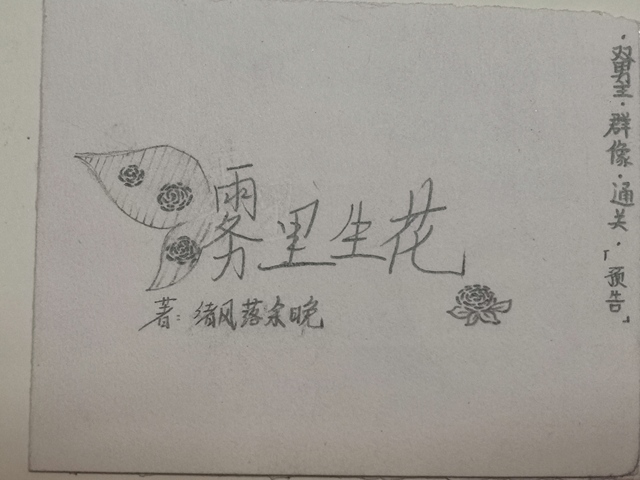 雾里生花
著:绪风落余晚
·双男主·群像·通关·「预告」